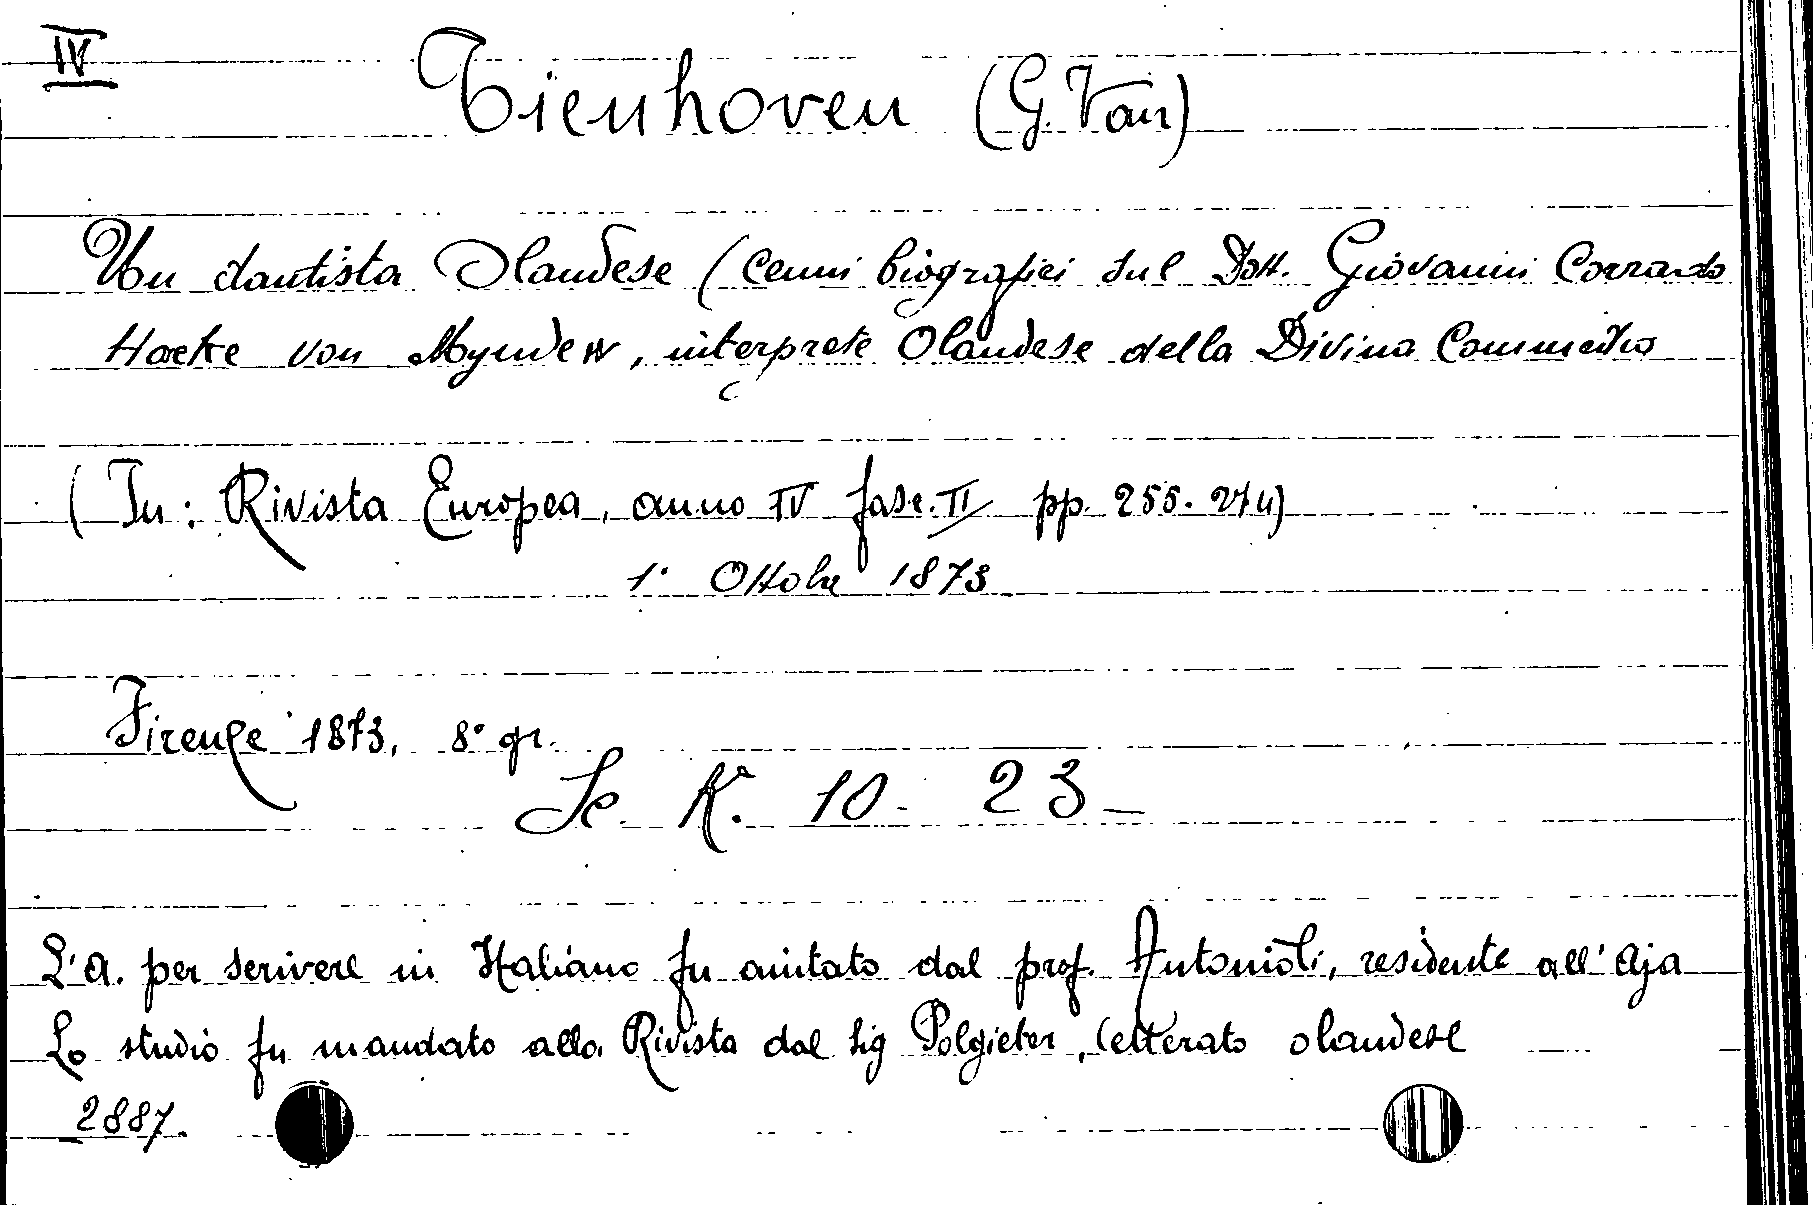 IV
Tienhoven (G. Van)
Un dantista Olandese (Cenni biografici sul Dott. Giovanni Corrado
Hacke von Mynden, interprete Olandese della Divina Commedia
(In: Rivista Europea, anno IV fasc. II pp. 255-274)
1° Ottobre 1873
Firenze 1873, 8° gr.
Sc. K. 10. 23
L'A. per scrivere in Italiano fu aiutato dal prof. Antonioli, residente all'Aja
Lo studio fu mandato alla Rivista dal Sig Polgieter, letterato olandese
2887.